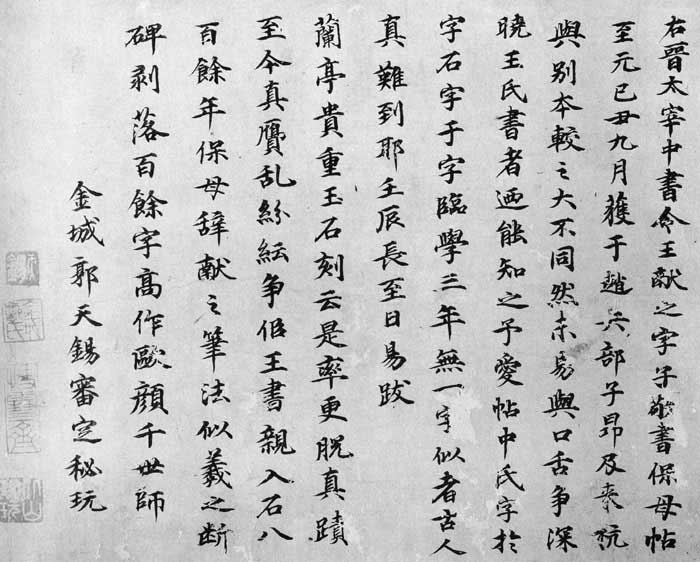 右晉太宰中書令王献之字子敬書保母帖
至元己丑九月獲于趙兵部子昂及来杭
與别本較之大不同然未易與口舌争深
曉王氏書者迺能知之予愛帖中氏字於
字石字于字臨學三年無一字似者古人
真難到耶壬辰長至日易跋
蘭亭貴重玉石刻云是率更脱真蹟
至今真贋乱紛紜争佀王書親入石八
百餘年保母辞献之筆法似羲之断
碑剥落百餘字高作歐顔千世師
金城郭天錫審定秘玩